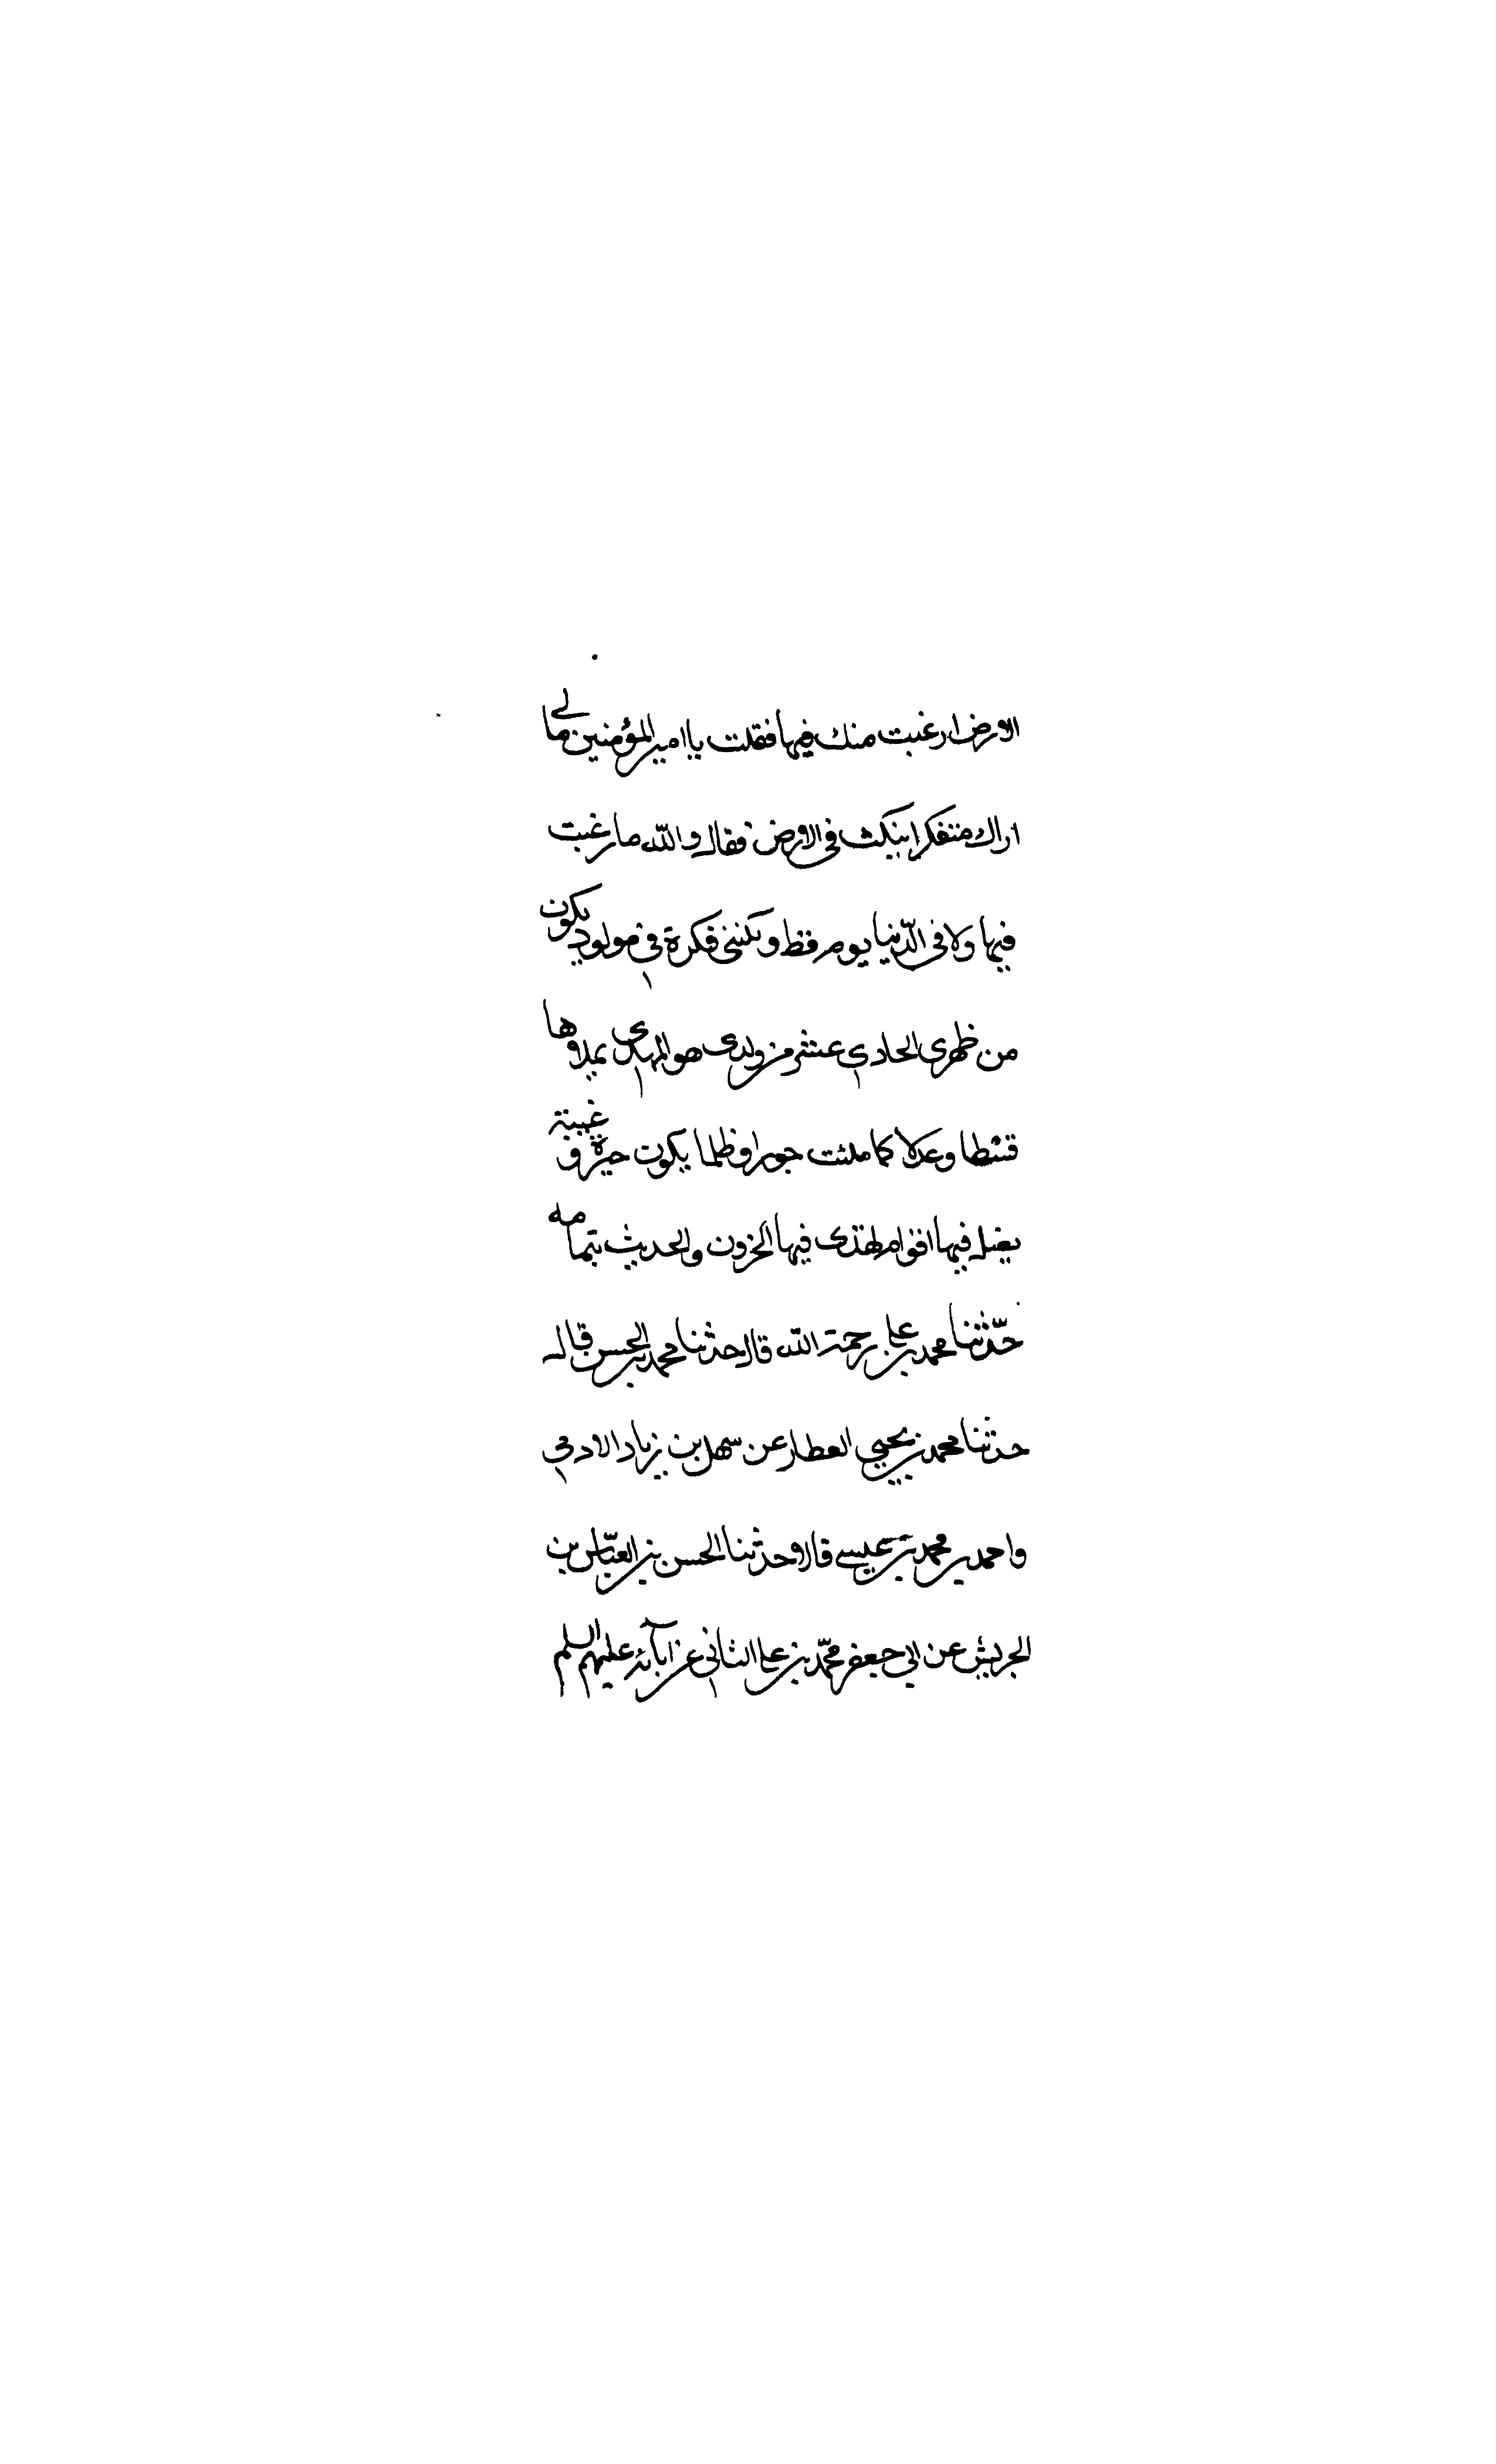 الارض ارغبت منك فيها فقلت يا امير المؤمنين مالي
اراك متفكرا تنكث في الارض فقال والله ما رغبت
فيها ولا في الدّنيا يوم قط ولكنني فكرة في مولود يكون
من ظهري الحادي عشر من ولدي هو المهدي يملاوها
قسطا وعدلا كما ملئت جورا وظلما يكون حيرة و غيبة
يضل فيها اقوام يهتدي فيها اخرون والحديث بتمامه
حدّثنا محمد بن علي رحمة الله قال حدثنا محمد بن الحسن قال
حدثنا محمد بن يحيى العطار عن سهل بن زياد الادمي
واحمد بن محمد بن عيسى قالا حدثنا الحسن بن العبّاس بن
الحريش عن ابي جعفر محمّد بن علي الثاني عن آبائه عليهم السلم